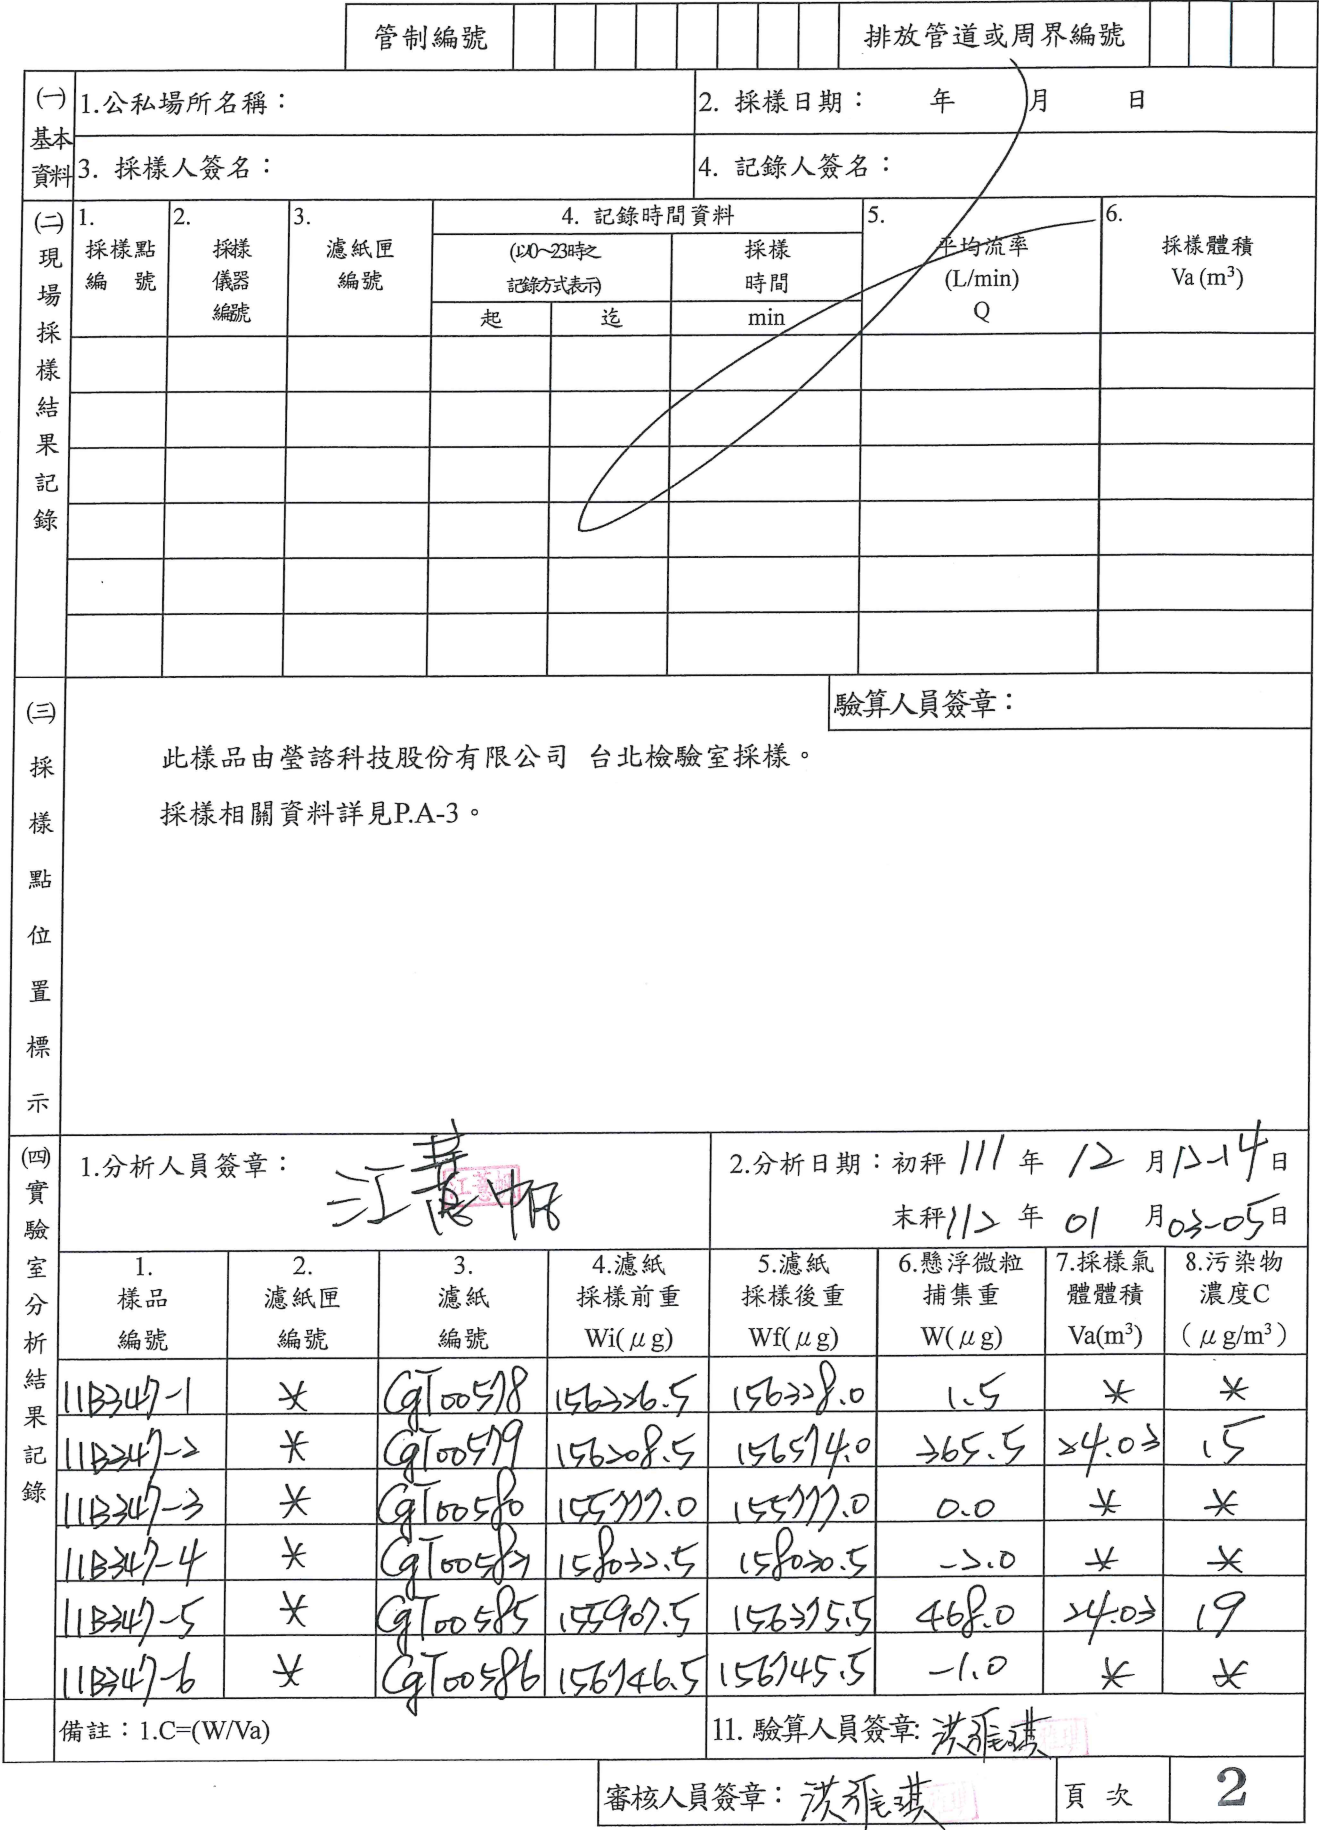 管制編號 排放管道或周界編號
(一)基本資料
1.公私場所名稱： 2. 採樣日期： 年 月 日
3. 採樣人簽名： 4. 記錄人簽名：
(二)現場採樣結果記錄
1. 採樣點編號 2. 採樣儀器編號 3. 濾紙匣編號 4. 記錄時間資料 5. 平均流率 (L/min) Q 6. 採樣體積 Va (m³)
(以0~23時之記錄方式表示) 採樣時間
起 迄 min
(三)採樣點位置標示
驗算人員簽章：
此樣品由瑩諮科技股份有限公司 台北檢驗室採樣。
採樣相關資料詳見P.A-3。
(四)實驗室分析結果記錄
1.分析人員簽章： 2.分析日期：初秤111年12月12-14日
末秤112年01月03-05日
1. 樣品編號 2. 濾紙匣編號 3. 濾紙編號 4.濾紙採樣前重 Wi(μg) 5.濾紙採樣後重 Wf(μg) 6.懸浮微粒捕集重 W(μg) 7.採樣氣體體積 Va(m³) 8.污染物濃度C（μg/m³）
11B347-1 * CgT00578 156226.5 156228.0 1.5 * *
11B347-2 * CgT00579 156208.5 156574.0 365.5 24.03 15
11B347-3 * CgT00580 155777.0 155777.0 0.0 * *
11B347-4 * 158032.5 158030.5 -2.0 * *
11B347-5 * CgT00585 155907.5 156375.5 468.0 24.03 19
11B347-6 * CgT00586 156746.5 156745.5 -1.0 * *
備註：1.C=(W/Va) 11. 驗算人員簽章:洪雅琪
審核人員簽章：洪雅琪 頁次 2